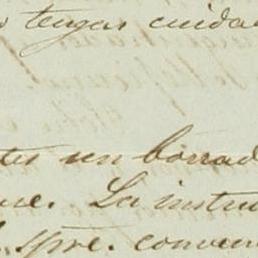 tengas cuida
tes un borrad
ue. La instru
spre. conven